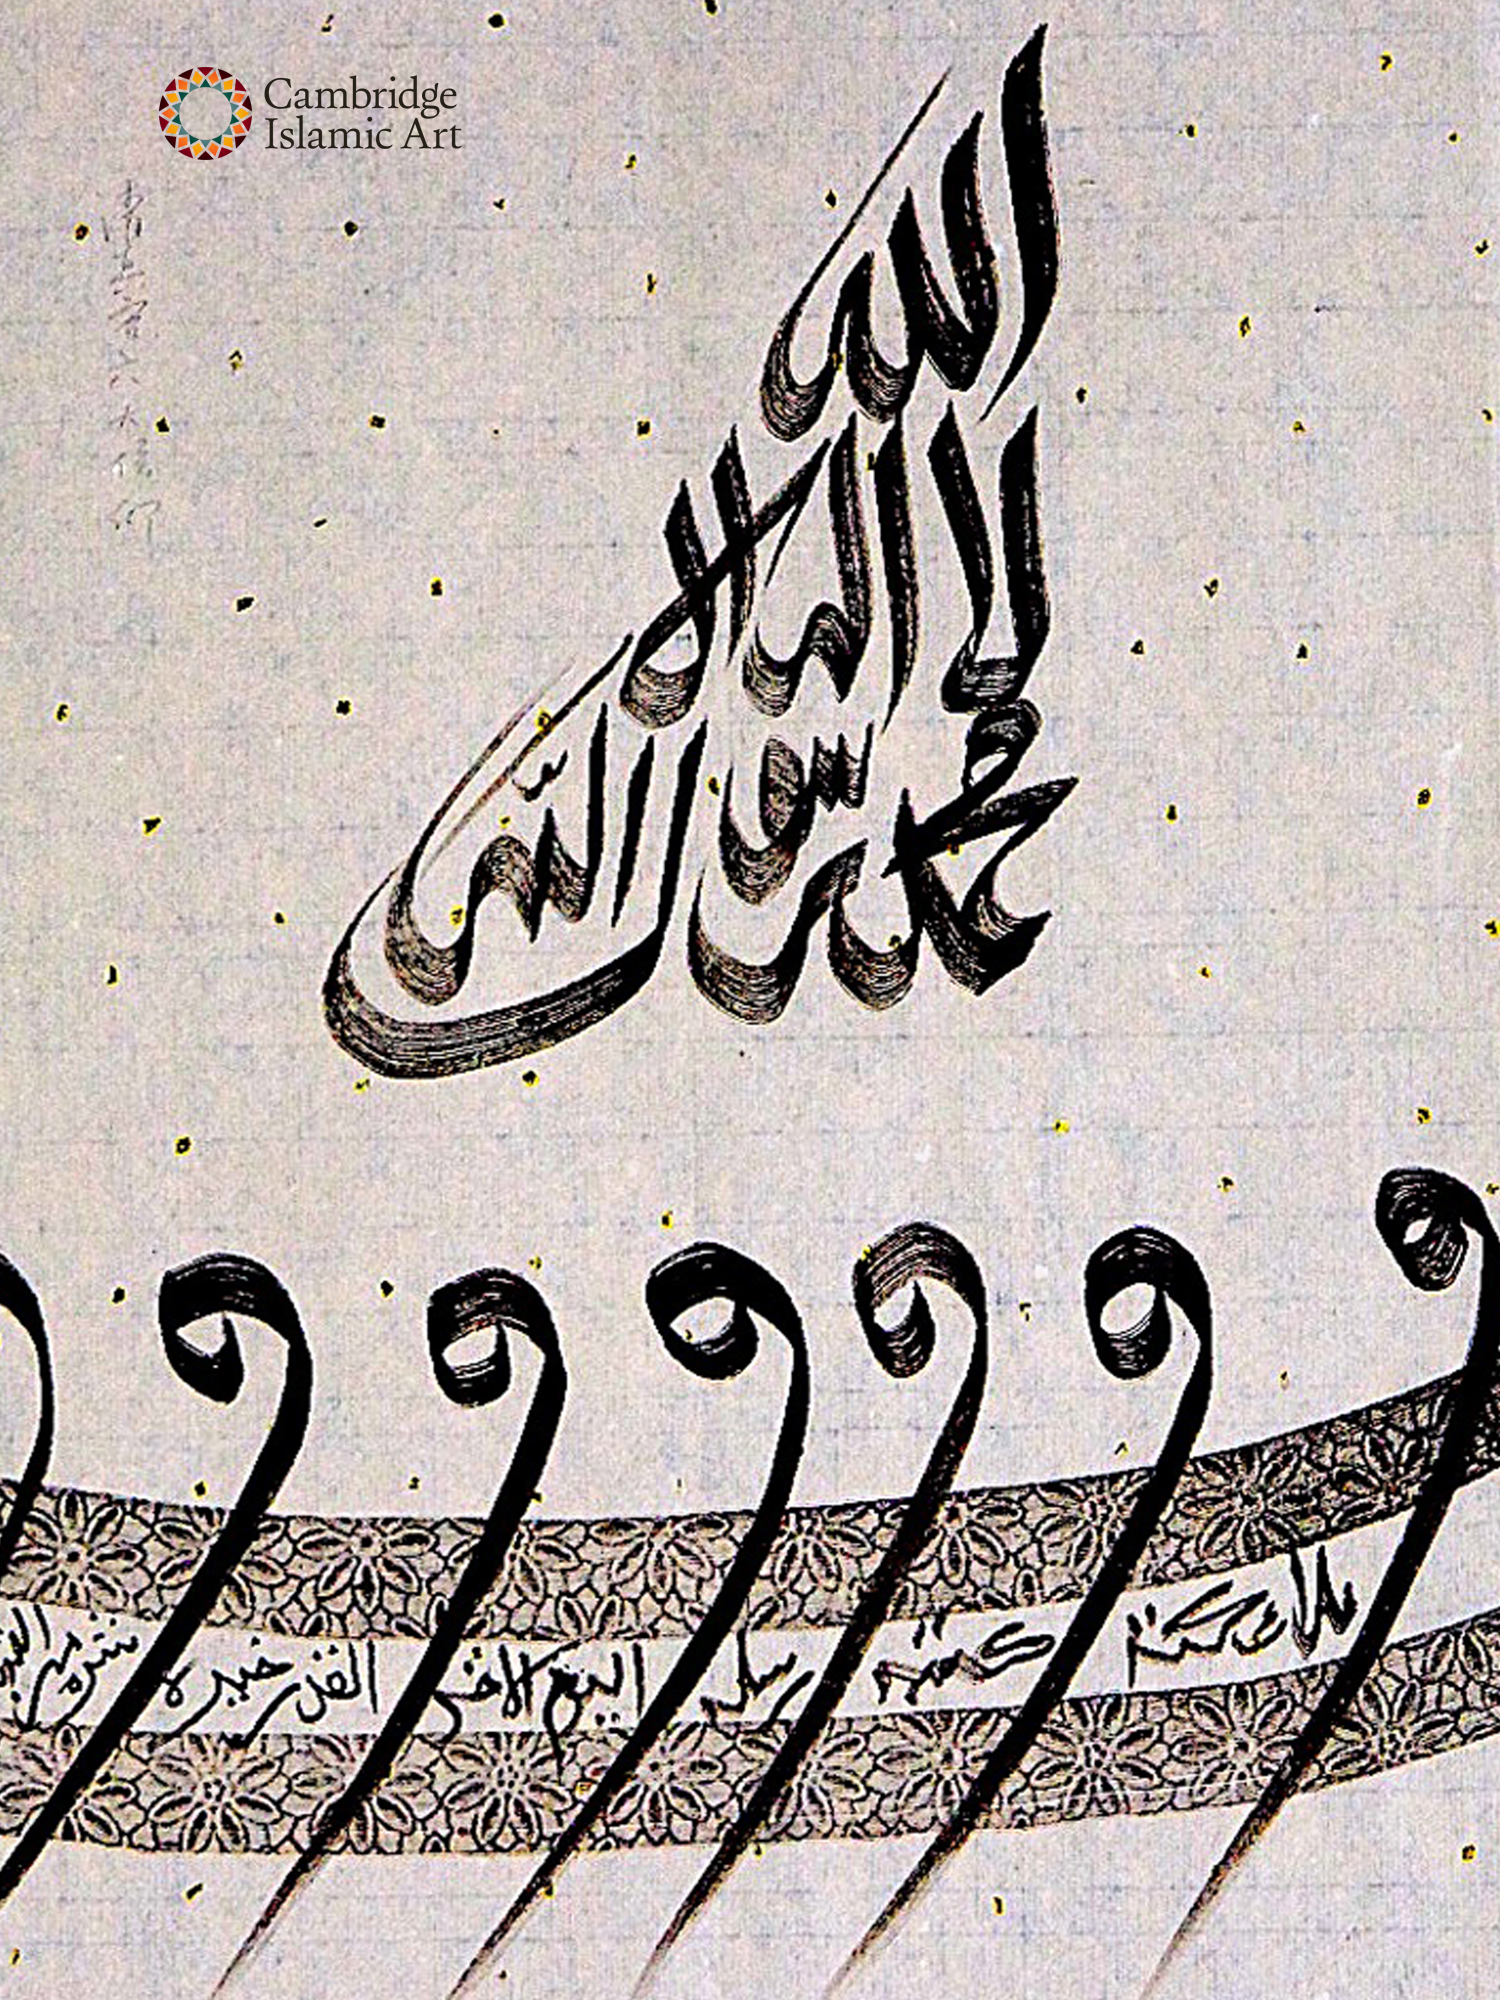 Cambridge
Islamic Art
الله
لا اله الا
محمد رسول الله
و ملائكته و كتبه و رسله و اليوم الاخر و القدر خيره و شره من